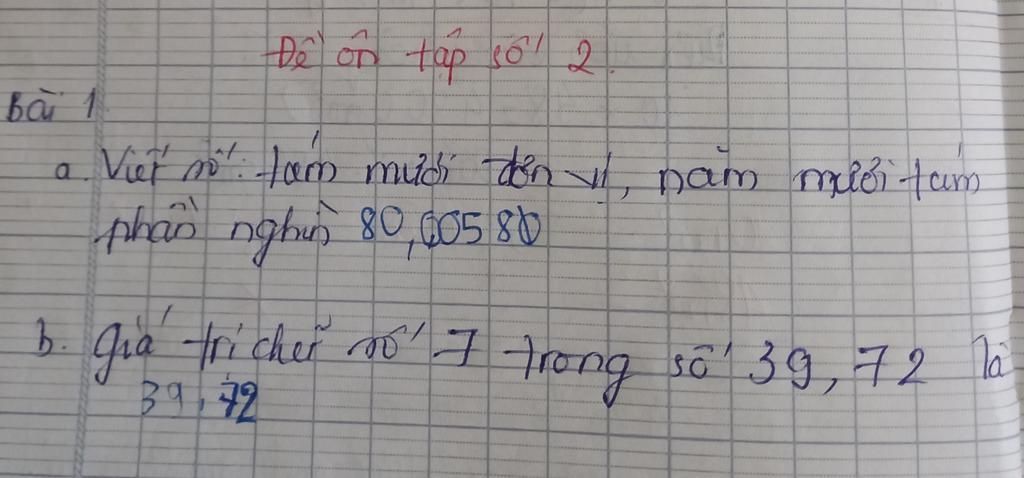 Đề ôn tập số 2.
Bài 1
a. Viết số: tám mươi đơn vị, năm mươi tám
phần nghìn 80,00580
b. giá trị chữ số 7 trong số 39,72 là
39,72